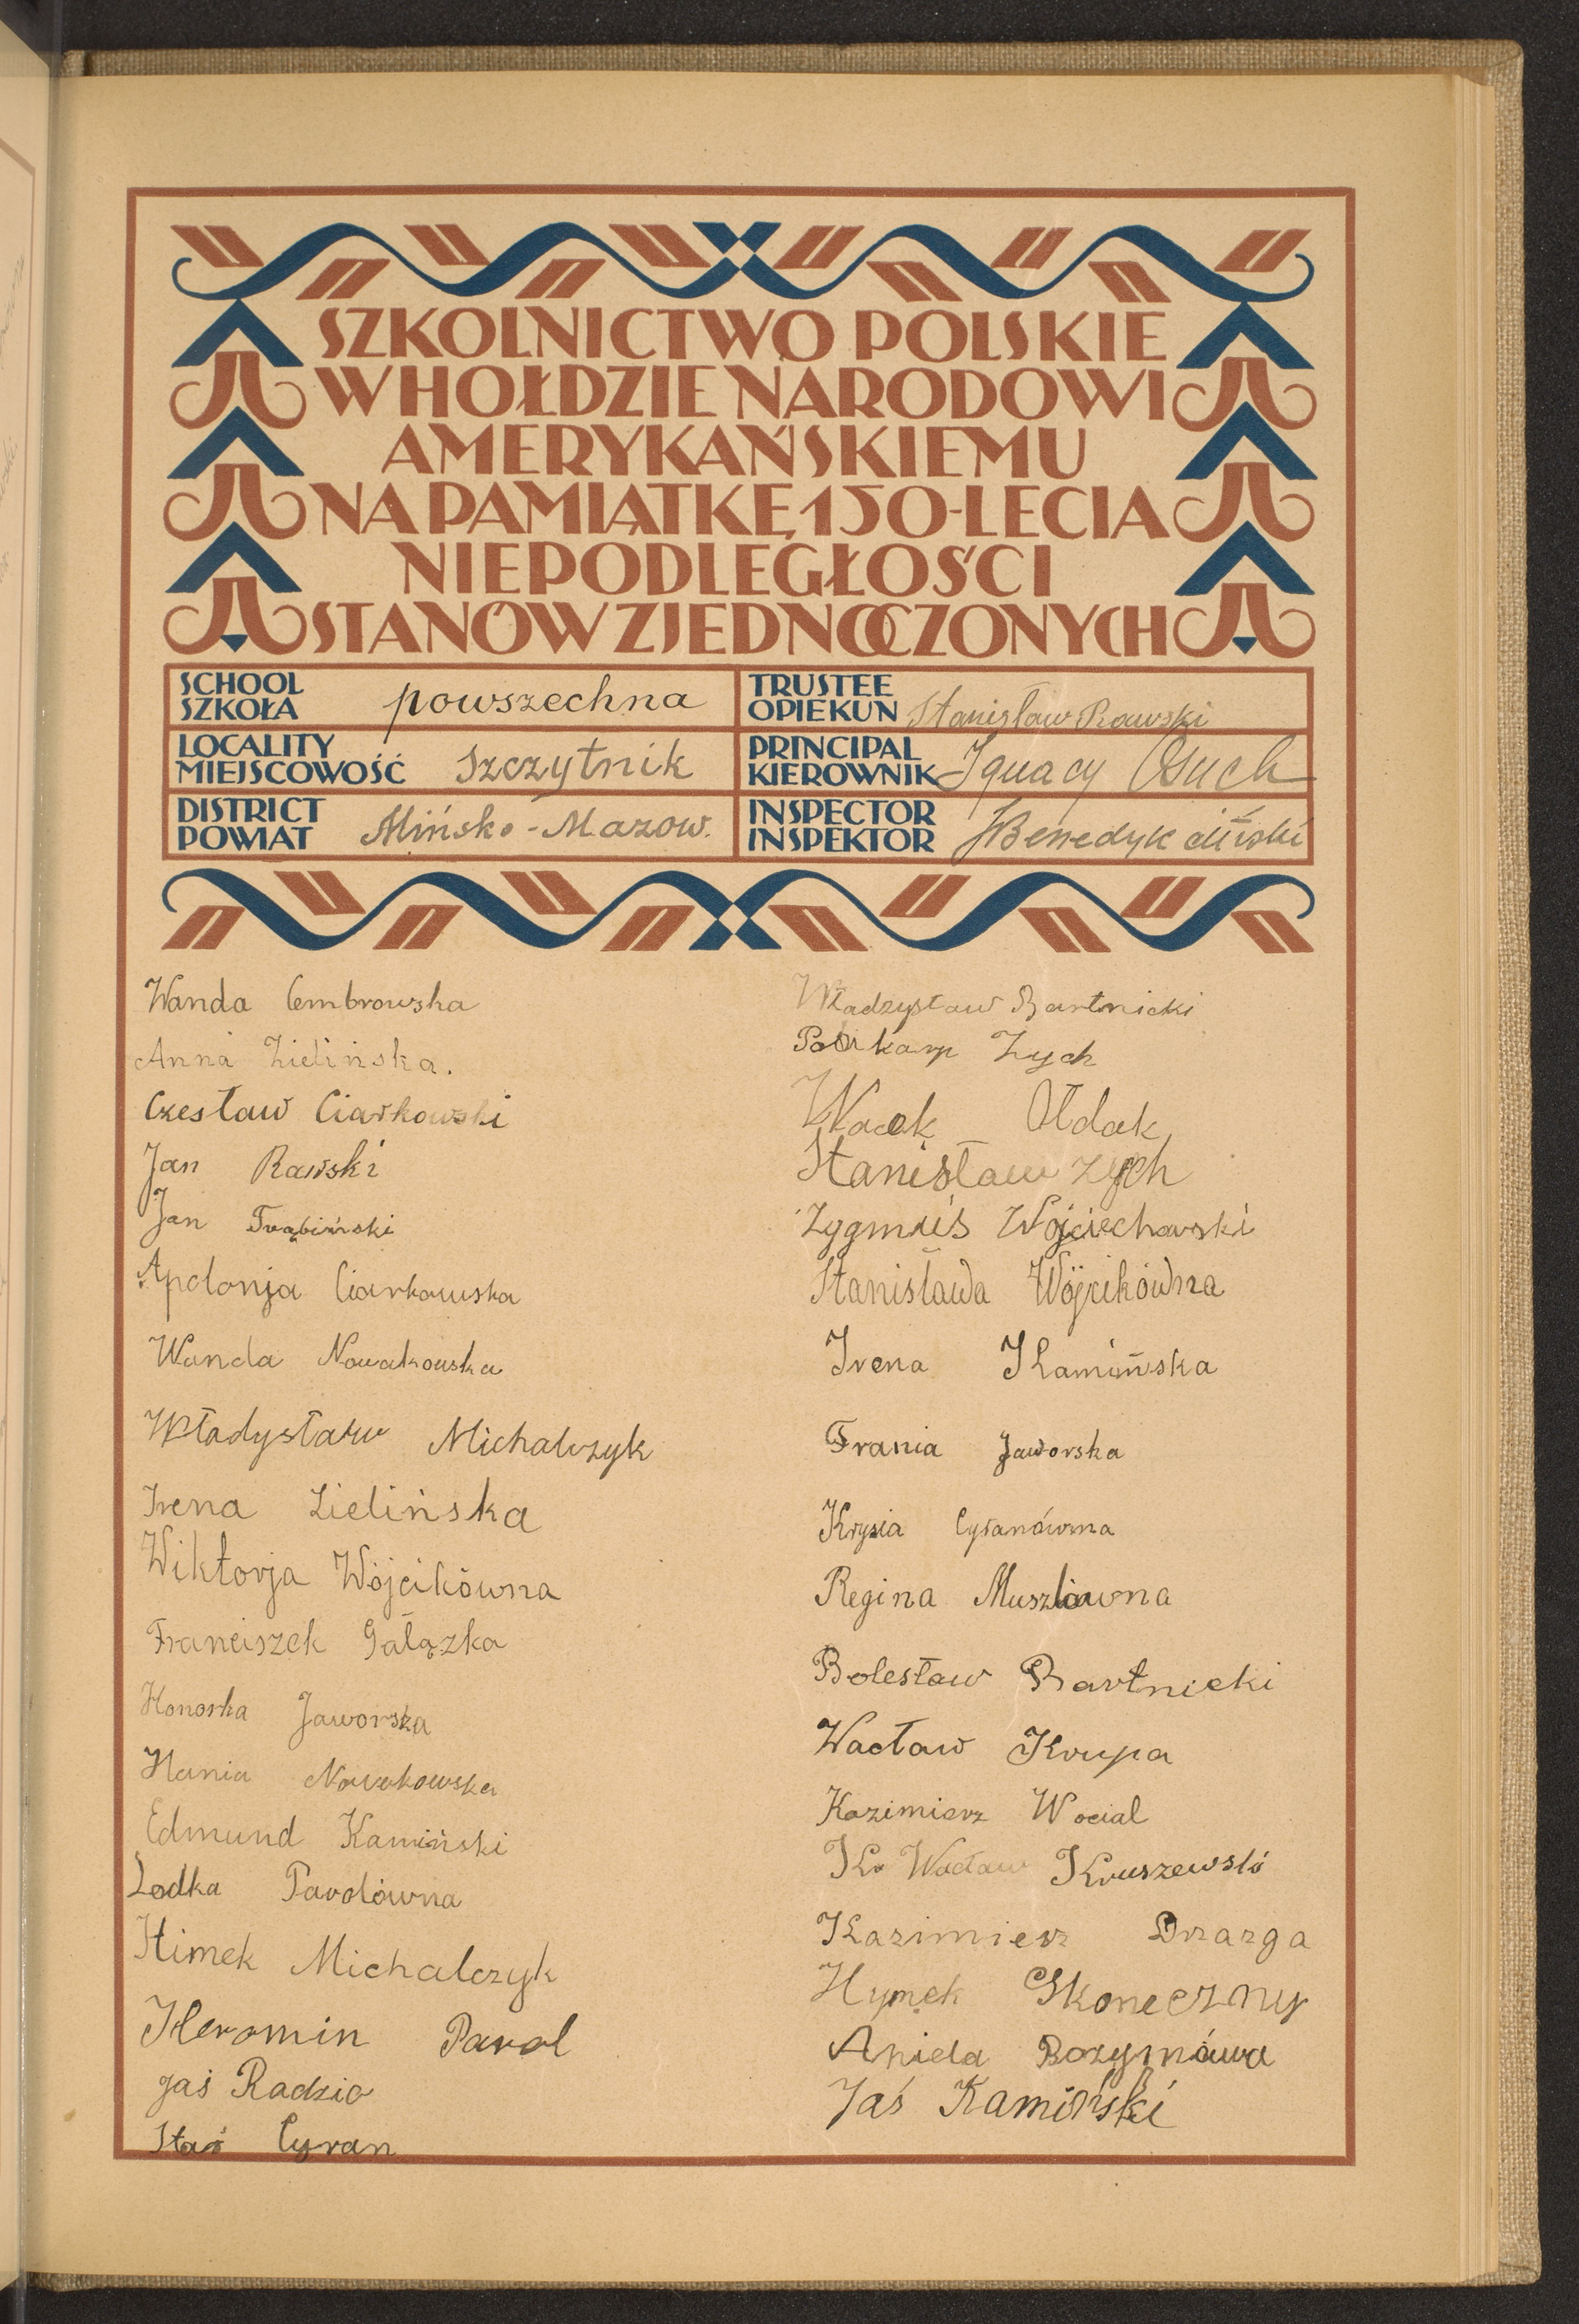 SZKOLNICTWO POLSKIE
W HOŁDZIE NARODOWI
AMERYKAŃSKIEMU
NA PAMIĄTKĘ 150-LECIA
NIEPODLEGŁOŚCI
STANÓW ZJEDNOCZONYCH
SCHOOL
SZKOŁA powszechna
TRUSTEE
OPIEKUN Stanisław Rawski
LOCALITY
MIEJSCOWOŚĆ Szczytnik
PRINCIPAL
KIEROWNIK Ignacy Osuch
DISTRICT
POWIAT Mińsko-Mazow.
INSPECTOR
INSPEKTOR Benedykciński
Wanda Cembrowska
Anna Zielińska.
Czesław Ciarkowski
Jan Rawski
Jan Trąbiński
Apolonja Ciarkowska
Wanda Nowakowska
Władysław Michalczyk
Irena Zielińska
Wiktorja Wójcikówna
Franciszek Gałązka
Honorka Jaworska
Hania Nowakowska
Edmund Kamiński
Zodka Parolówna
Himek Michalczyk
Heromin Parol
Jaś Radzio
Staś Cyran
Władzysław Bartnicki
Zych
Wacek Ołdak
Stanisław Zych
Zygmuś Wójciechowski
Stanisława Wójcikówna
Irena Kamińska
Frania Jaworska
Krysia Cyranówna
Regina
Bolesław Bartnicki
Wacław Krupa
Kazimierz Wocial
Kr Wacław Kruszewski
Kazimierz Drzazga
Hymek Skoneczny
Aniela Rozymówa
Jaś Kamiński